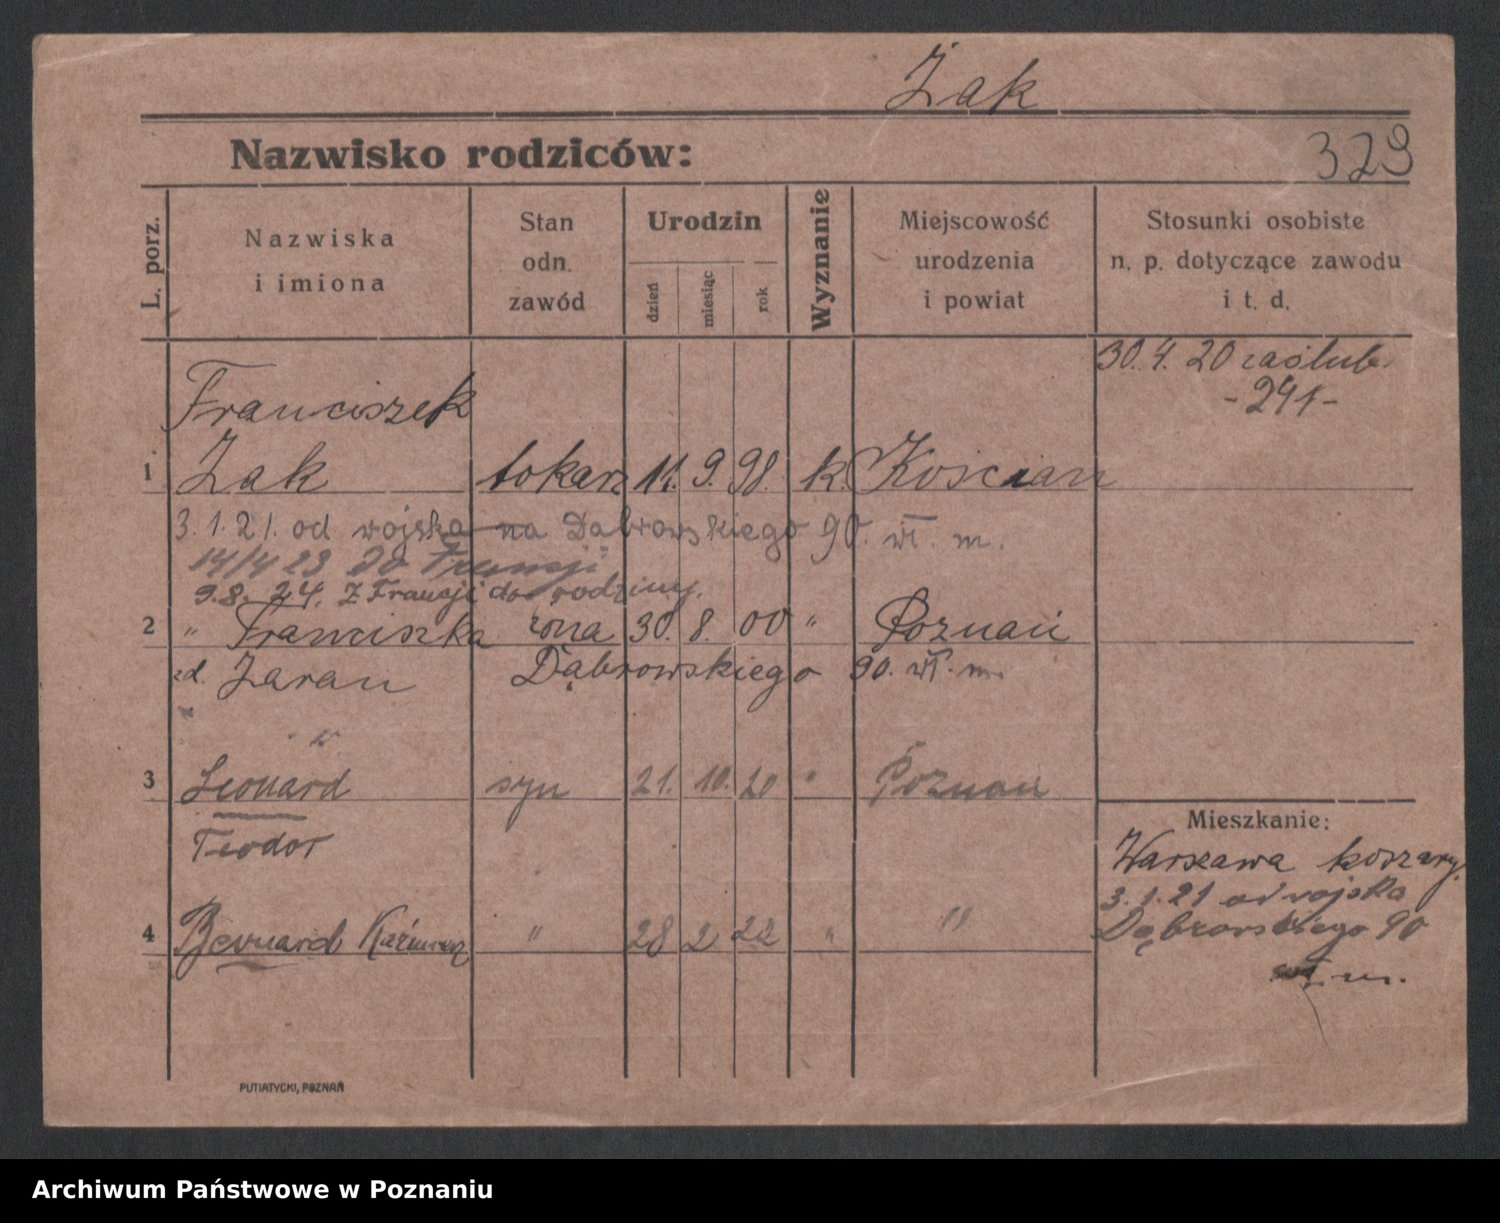 Żak
Nazwisko rodziców:
329
L. porz.
Nazwiska
i imiona
Stan
odn.
zawód
Urodzin
dzień
miesiąc
rok
Wyznanie
Miejscowość
urodzenia
i powiat
Stosunki osobiste
n. p. dotyczące zawodu
i t. d.
30.4.20 zaślub.
-241-
Franciszek
1 Żak tokarz 11. 9. 98. k. Kościan
3.1.21. od wojska na Dąbrowskiego 90. wł. m.
14/4 23 do Francji
9.8. 24. Z Francji do rodziny.
2 " Franciszka żona 30. 8. 00 " Poznań
zd. Żaran Dąbrowskiego 90. wł. m.
3 Leonard syn 21. 10. 20 " Poznań
Teodor
4 Bernard Kaźmierz " 28 2 22 " "
Mieszkanie:
Warszawa koszary.
3.1.21 od wojska
Dąbrowskiego 90
wł. m.
PUTIATYCKI, POZNAŃ
Archiwum Państwowe w Poznaniu